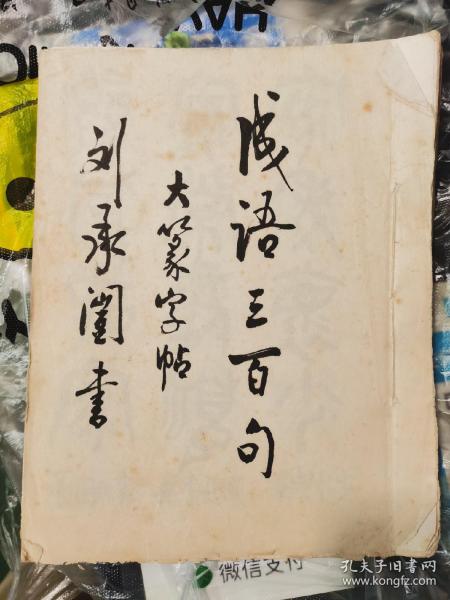 成语三百句
大篆字帖
刘承闿书
微信支付
孔夫子旧书网
www.kongfz.com